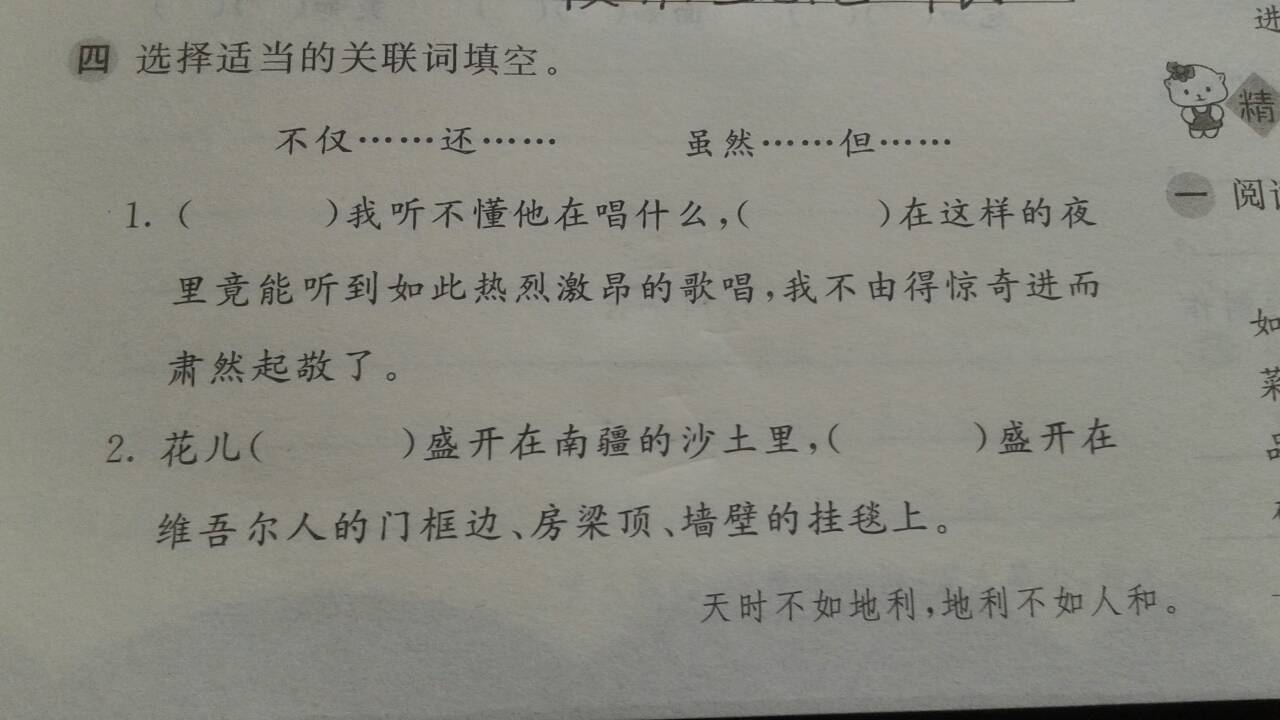 四 选择适当的关联词填空。
不仅……还…… 虽然……但……
1. ( )我听不懂他在唱什么,( )在这样的夜
里竟能听到如此热烈激昂的歌唱,我不由得惊奇进而
肃然起敬了。
2. 花儿( )盛开在南疆的沙土里,( )盛开在
维吾尔人的门框边、房梁顶、墙壁的挂毯上。
天时不如地利,地利不如人和。
进
精
一 阅
如
菜